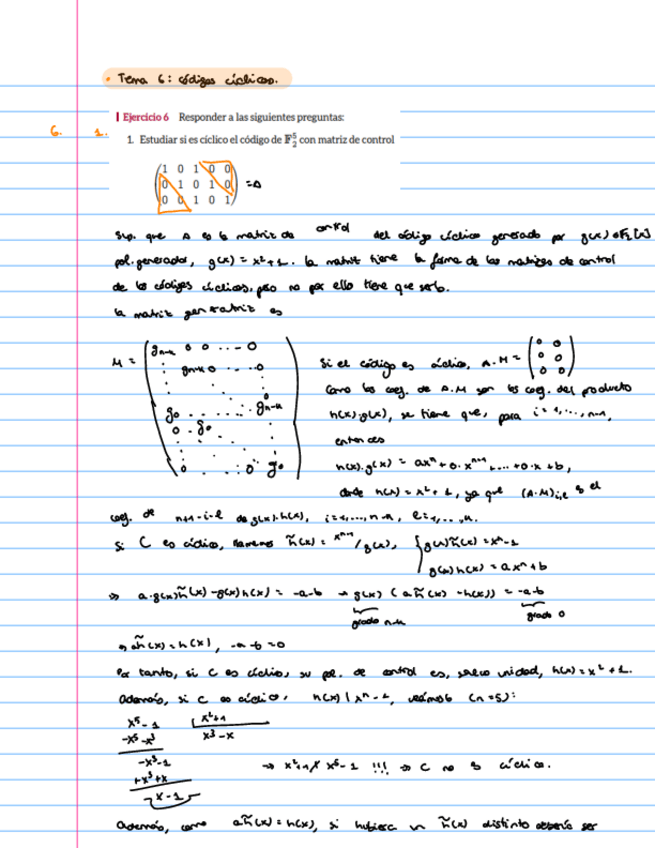 • Tema 6: códigos cíclicos.
Ejercicio 6 Responder a las siguientes preguntas:
6. 1. 1. Estudiar si es cíclico el código de F₂⁵ con matriz de control
(1 0 1 0 0
0 1 0 1 0
0 0 1 0 1) = A
Sup. que A es la matriz de control del código cíclico generado por g(x) ∈ F₂[x]
pol. generador, g(x) = x²+1. La matriz tiene la forma de las matrices de control
de los códigos cíclicos, pero no por ello tiene que serlo.
La matriz generatriz es
M =
Si el código es cíclico, A.M = (0 0
0 0
0 0)
Como los coef. de A.M son los coef. del producto
h(x).g(x), se tiene que, para
entonces
h(x).g(x) = axⁿ + 0.xⁿ⁻¹ + ... + 0.x + b,
donde h(x) = x² + 1, ya que (A.M)i,l es el
coef. de n+1-i-l de g(x).h(x),
Si C es cíclico, llamemos h̃(x) = xⁿ⁻¹/g(x), { g(x)h̃(x) = xⁿ-1
g(x)h(x) = axⁿ+b
⇒ a.g(x)h̃(x) - g(x)h(x) = -a-b → g(x) (ah̃(x) - h(x)) = -a-b
grado n-k grado 0
⇒ ah̃(x) = h(x), -a-b = 0
Por tanto, si C es cíclico, su pol. de control es, salvo unidad, h(x) = x² + 1.
Además, si C es cíclico, h(x) | xⁿ-1, veámoslo (n=5):
x⁵-1 | x²+1
-x⁵-x³ x³-x
-x³-1
+x³+x
x-1
→ x²+1 ∤ x⁵-1 !!! ⇒ C no es cíclico.
Además, como ah̃(x) = h(x), si hubiera un h̃(x) distinto debería ser